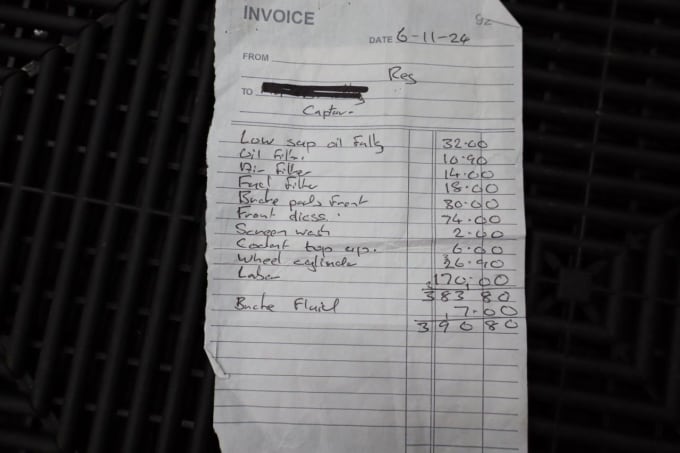 INVOICE
DATE 6-11-24
FROM
Reg
TO
Captur
Low sap oil Fully 32.00
Oil filter 10.90
Air filter 14.00
Fuel filter 18.00
Brake pads front 30.00
Front discs. 74.00
Screen wash 2.00
Coolant top up. 6.00
Wheel cylinder 26.90
Labor 170.00
383 80
Brake Fluid 7.00
390 80